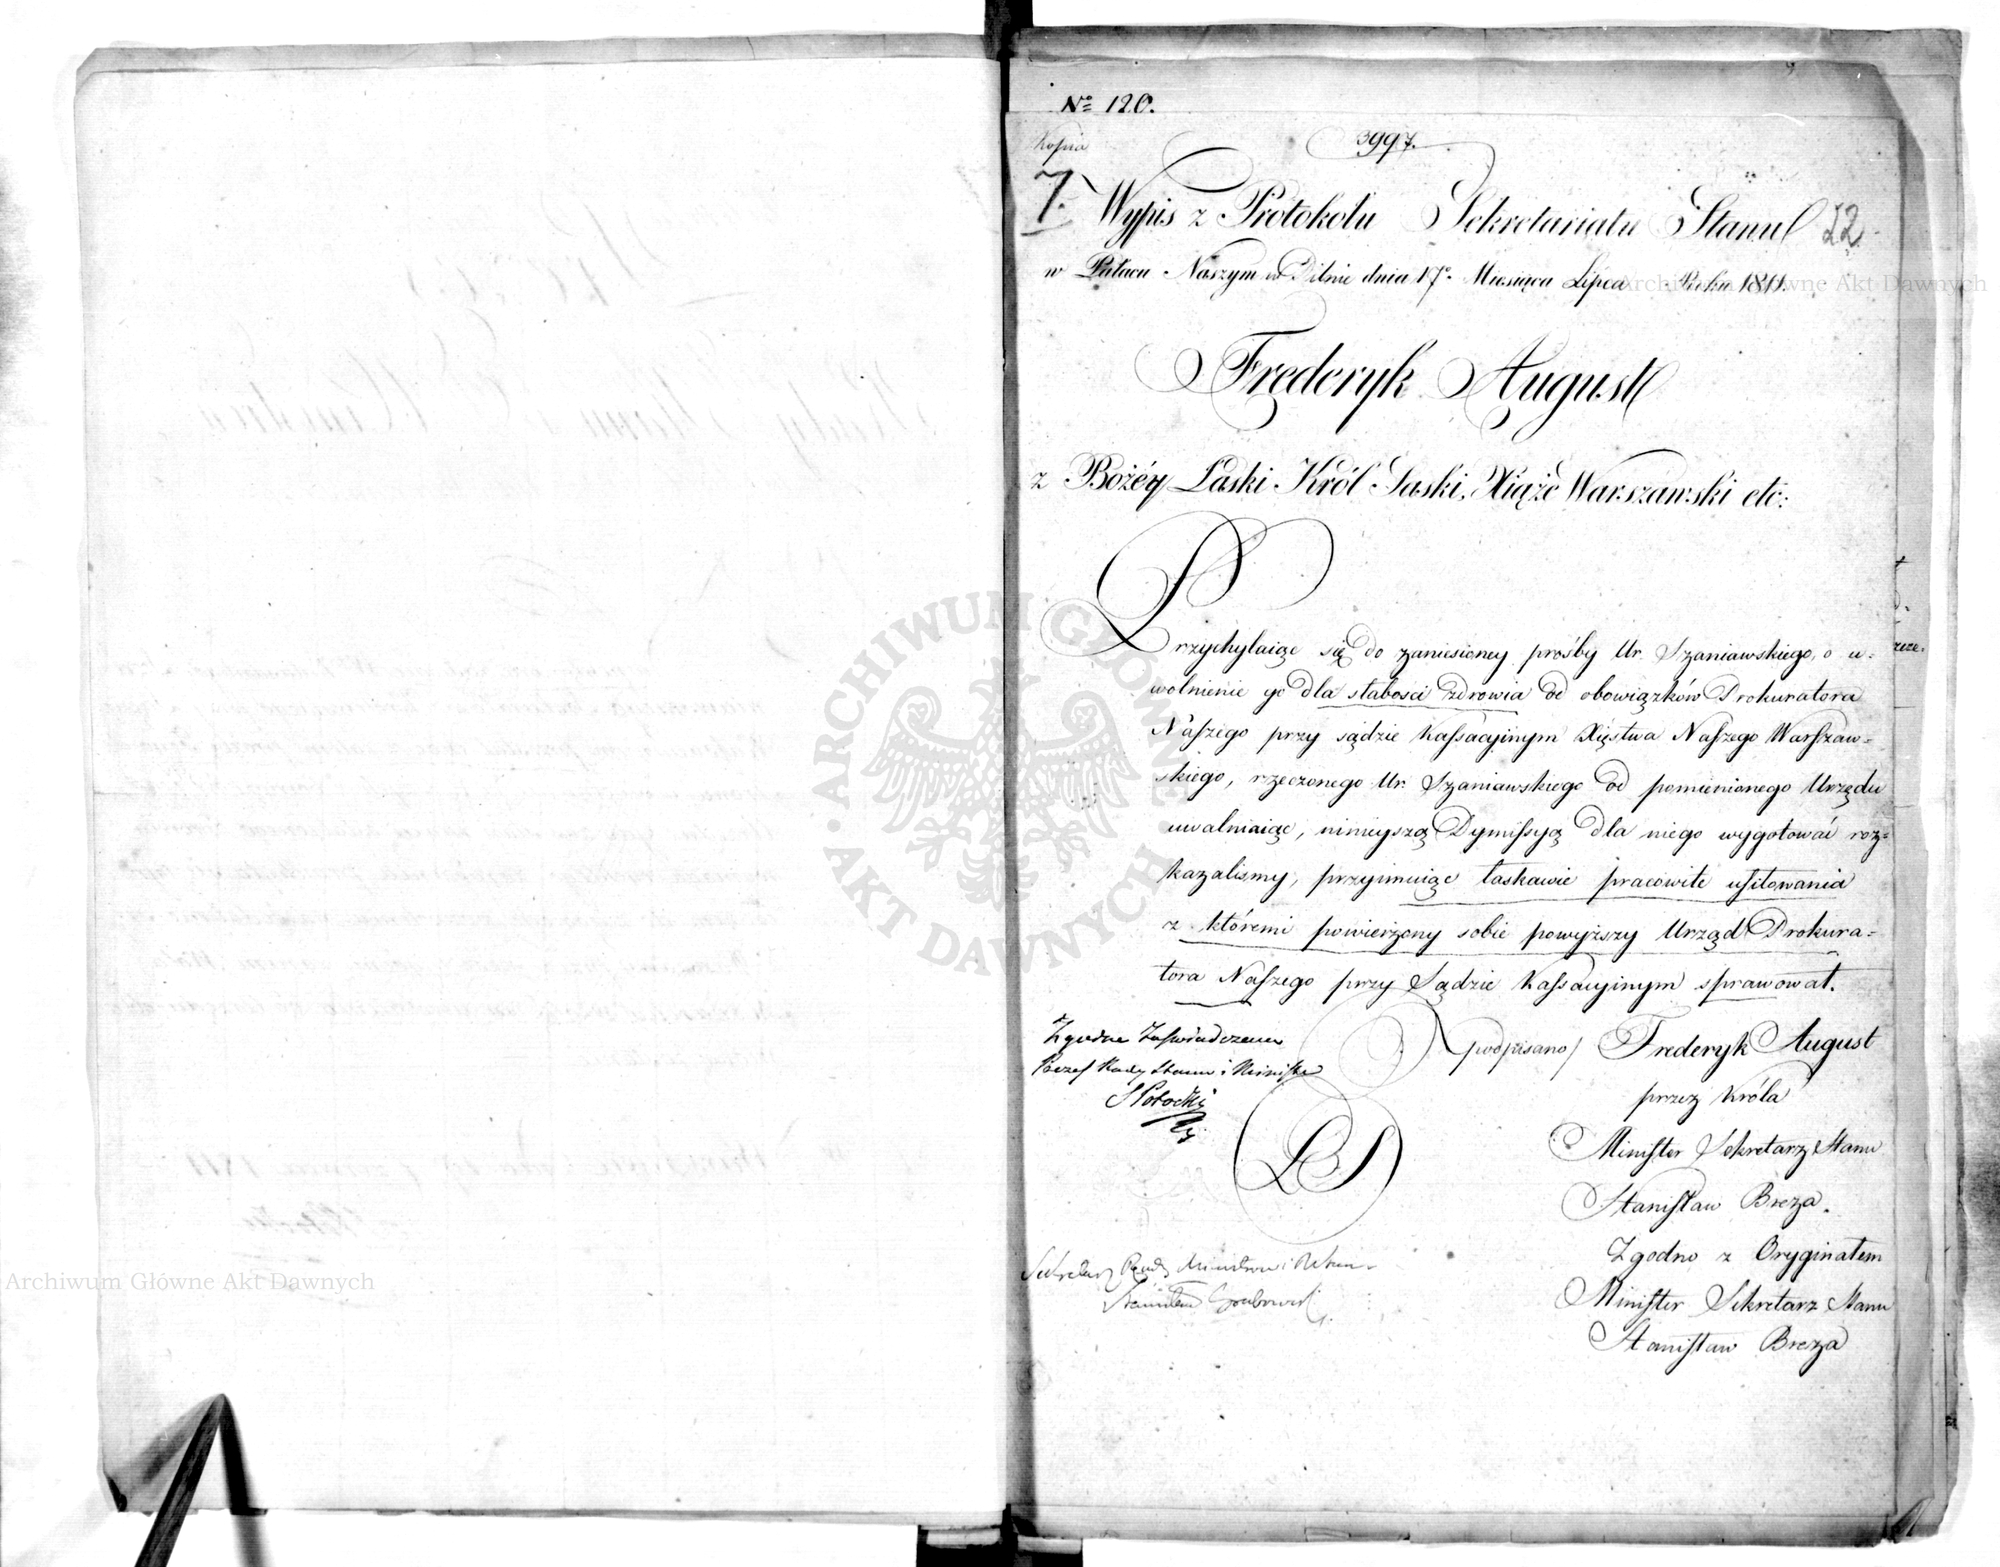 № 120.
Kopia
3997.
7. Wypis z Protokołu Sekretariatu Stanu 22
w Pałacu Naszym w Pilnic dnia 17°. Miesiąca Lipca Roku 1811.
Fręderyk August
z Bożéy Łaski Król Saski, Xiąże Warszawski etc:
Przychylaiąc się do zaniesioney prośby Ur. Szaniawskiego, o u-
wolnienie go dla słabości zdrowia od obowiązków Prokuratora
Naszego przy sądzie Kassacyinym Xięstwa Naszego Warszaw-
skiego, rzeczonego Ur. Szaniawskiego od pomienionego Urzędu
uwalniaiąc, ninieyszą Dymissyą dla niego wygotować roz-
kazaliśmy, przyimuiąc łaskawie pracowite usiłowania
z któremi powierzony sobie powyższy Urząd Prokura-
tora Naszego przy Sądzie Kassacyinym sprawował.
/podpisano/ Frederyk August
przez Króla
Minister Sekretarz Stanu
Stanisław Breza.
Zgodno z Oryginałem
Minister Sekretarz Stanu
Stanisław Breza
Zgodne Zaświadczam
Prezes Rady Stanu i Ministr
S Potocki
LS
Sekretarz Rady Ministrów i Stanu
Stanisław Grabowski
ARCHIWUM GŁÓWNE AKT DAWNYCH
Archiwum Główne Akt Dawnych
Archiwum Główne Akt Dawnych